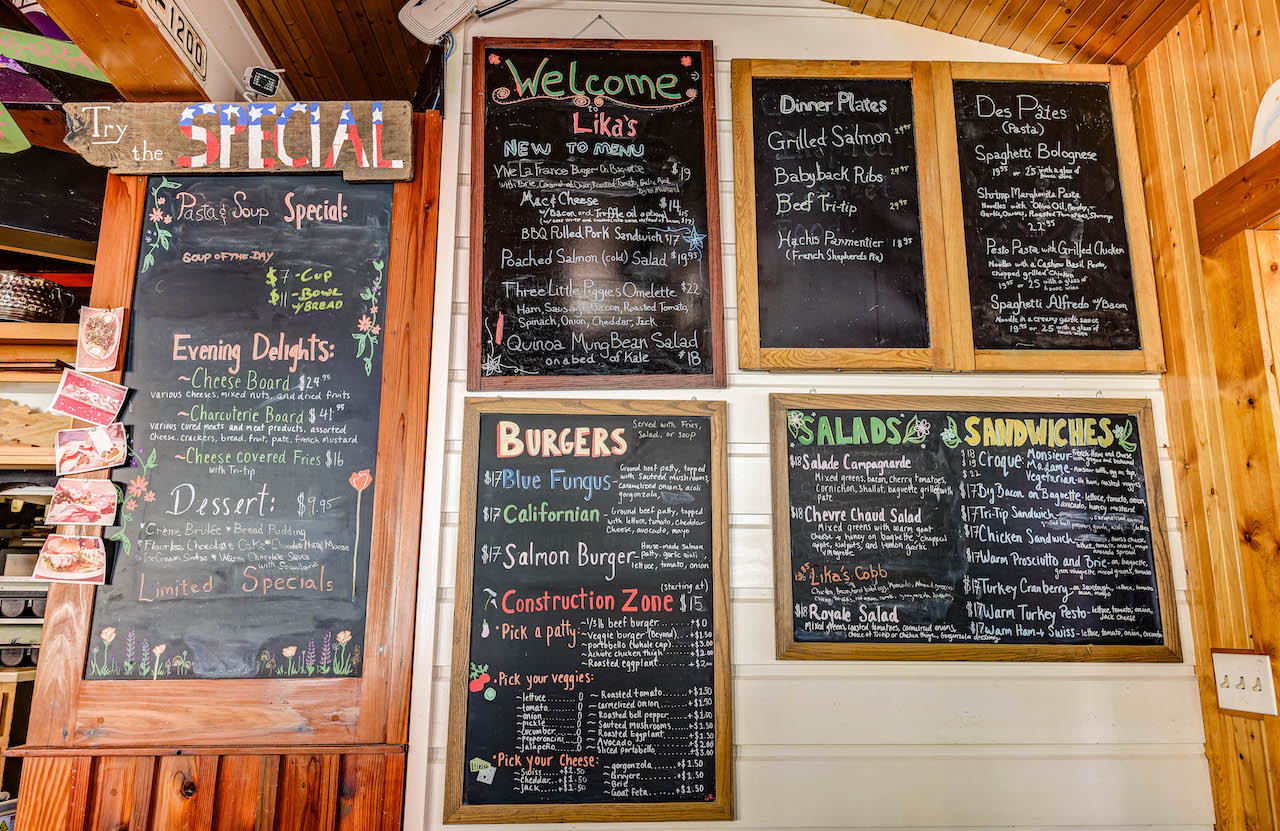 1200
Try the SPECIAL
Pasta & Soup Special:
SOUP OF THE DAY
$7 - CUP
$11 - BOWL
w/ BREAD
Evening Delights:
~Cheese Board $24.95
various cheeses, mixed nuts, and dried fruits
~Charcuterie Board $41.95
various cured meats and meat products, assorted
cheese, crackers, bread, fruit, pate, french mustard
~Cheese covered Fries $16
with Tri-tip
Dessert: $9.95
Crème Brulée Bread Pudding
Flourless Chocolate Cake Chocolate Mousse
Ice Cream Sundae w Warm Chocolate Sauce
with Strawberries
Limited Specials
Welcome
to
Lika's
NEW TO MENU
Vive La France Burger On Baguette $19
with Brie, Caramelized Onion, Roasted Tomato, Garlic Aioli
Mac & Cheese $14
w/ Bacon and Truffle oil option $15
BBQ Pulled Pork Sandwich $17
Poached Salmon (cold) Salad $19.95
Three Little Piggies Omelette $22
Ham, Sausage, Bacon, Roasted Tomato,
Spinach, Onion, Cheddar, Jack
Quinoa Mung Bean Salad
on a bed of Kale $18
Dinner Plates
Grilled Salmon 29.95
Babyback Ribs 29.95
Beef Tri-tip 29.95
Hachis Parmentier 18.95
(French Shepherds Pie)
Des Pâtes
(Pasta)
Spaghetti Bolognese
19.95 or 25 with a glass of
house wine
Shrimp Margherita Pasta
Noodles with Olive Oil, Parsley,
Garlic, Onions, Roasted Tomatoes, Shrimp
22.95
Pesto Pasta with Grilled Chicken
Noodles with a Cashew Basil Pesto,
chopped grilled Chicken
19.95 or 25 with a glass of
house wine
Spaghetti Alfredo w/ Bacon
Noodle in a creamy garlic sauce
19.95 or 25 with a glass of
house wine
BURGERS
Served with Fries,
Salad, or Soup
$17 Blue Fungus - Ground beef patty, topped
with Sauteed mushrooms,
caramelized onions, aioli
gorgonzola,
$17 Californian - Ground beef patty, topped
with lettuce, tomato, cheddar
Cheese, avocado, mayo
$17 Salmon Burger - House-made Salmon
Patty, garlic aioli
lettuce, tomato, onion
(starting at)
Construction Zone $15
• Pick a patty ~ 1/3 lb beef burger +$0
~ Veggie burger (Beyond) +$1.50
portobello (whole cap) +$3.00
~ Achiote chicken thigh +$2.00
~ Roasted eggplant +$2.00
• Pick your veggies:
~lettuce 0
~tomato 0
~onion 0
~pickle 0
~cucumber 0
~pepperoncini 0
~jalapeño 0
~ Roasted tomato +$1.50
~ Carmelized onion +$1.50
~ Roasted bell pepper +$1.50
~ Sauteed mushrooms +$1.50
~ Roasted Eggplant +$1.50
~ Avocado +$2.00
~ Sliced portobello +$3.00
• Pick your Cheese:
~ Swiss +$1.50
~ cheddar +$1.50
~ Jack +$1.50
~ gorgonzola +$1.50
~ Gruyere +$1.50
~ Brie
~ Goat Feta +$1.50
SALADS
$18 Salade Campagnarde
Mixed greens, bacon, cherry tomatoes,
Cornichon, Shallot, baguette grilled with
pate
$18 Chevre Chaud Salad
Mixed greens with warm goat
cheese & honey on baguette, chopped
apple, walnuts, and lemon garlic
vinaigrette
Lika's Cobb
$18 Royale Salad
Mixed greens, roasted tomatoes, carmelized onions,
choice of Tri-tip or Chicken thighs, Gorgonzola dressing
SANDWICHES
$18 Croque: Monsieur - French Ham and Cheese
with gruyere and bechamel
$19 Madame - monsieur with egg on top,
$22 Vegetarian - no Ham, roasted veggies
$17 Big Bacon on Baguette - lettuce, tomato, onion
avocado, honey mustard
$17 Tri-Tip Sandwich
$17 Chicken Sandwich
lettuce, tomato, onion, mayo
avocado spread
$17 Warm Prosciutto and Brie - on baguette,
$17 Turkey Cranberry - on Sourdough, lettuce, tomato,
onion, mayo
$17 Warm Turkey Pesto - lettuce, tomato, onion,
Jack cheese
$17 Warm Ham + Swiss - lettuce, tomato, onion